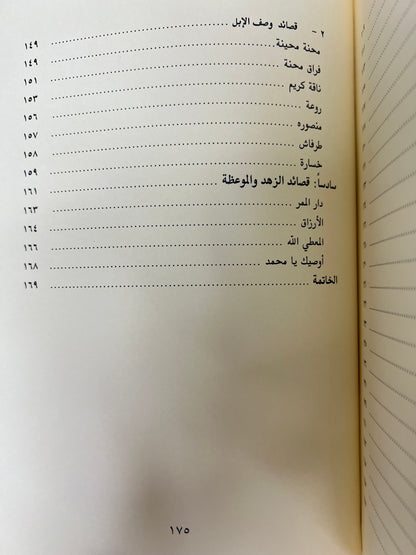 ٢ - قصائد وصف الإبل ........ ١٤٩
محنة محينة ........ ١٤٩
فراق محنة ........ ١٤٩
ناقة كريم ........ ١٥١
روعة ........ ١٥٣
منصوره ........ ١٥٦
طرفاش ........ ١٥٧
خسارة ........ ١٥٨
سادساً: قصائد الزهد والموعظة ........ ١٥٩
دار الممر ........ ١٦١
الأرزاق ........ ١٦٣
المعطي الله ........ ١٦٤
أوصيك يا محمد ........ ١٦٦
الخاتمة ........ ١٦٨
١٦٩
١٧٥